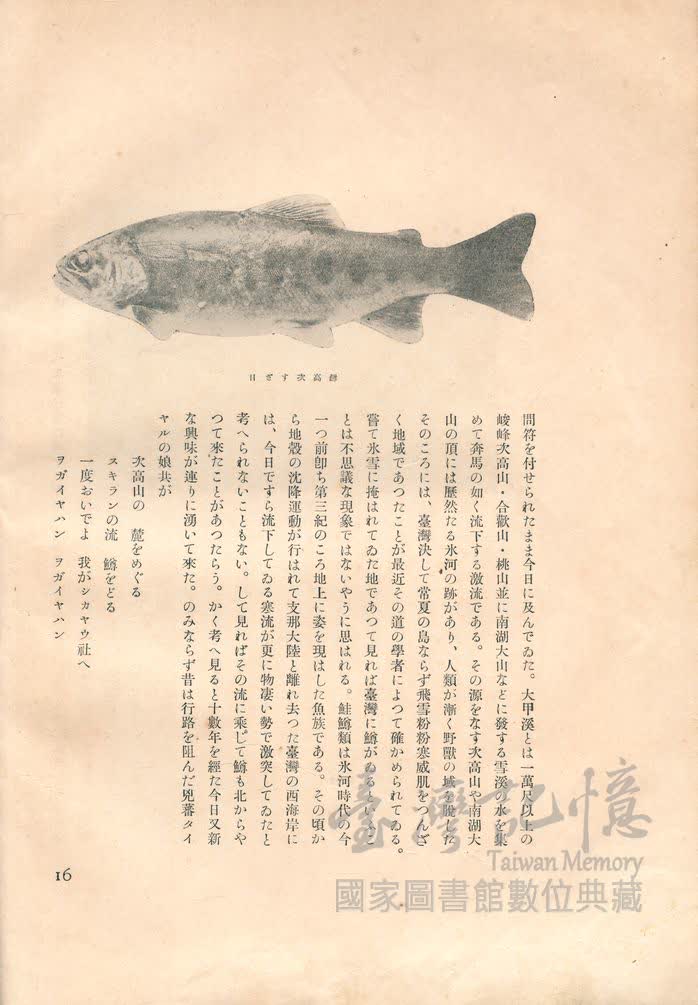 日ざす次高鱒
問符を付せられたまま今日に及んでゐた。大甲溪とは一萬尺以上の
峻峰次高山・合歡山・桃山並に南湖大山などに發する雪溪の水を集
めて奔馬の如く流下する激流である。その源をなす次高山や南湖大
山の頂には歷然たる氷河の跡があり、人類が漸く野獸の域を脫した
そのころには、臺灣決して常夏の島ならず飛雪粉粉寒威肌をつんざ
く地域であつたことが最近その道の學者によつて確かめられてゐる。
嘗て氷雪に掩はれてゐた地であつて見れば臺灣に鱒がゐるといふこ
とは不思議な現象ではないやうに思はれる。鮭鱒類は氷河時代の今
一つ前卽ち第三紀のころ地上に姿を現はした魚族である。その頃か
ら地殼の沈降運動が行はれて支那大陸と離れ去つた臺灣の西海岸に
は、今日ですら流下してゐる寒流が更に物凄い勢で激突してゐたと
考へられないこともない。して見ればその流に乘じて鱒も北からや
つて來たことがあつたらう。かく考へ見ると十數年を經た今日又新
な興味が連りに湧いて來た。のみならず昔は行路を阻んだ兇蕃タイ
ヤルの娘共が
次高山の 麓をめぐる
スキランの流 鱒をどる
一度おいでよ 我がシカヤウ社へ
ヲガイヤハン ヲガイヤハン
16
臺灣記憶
Taiwan Memory
國家圖書館數位典藏